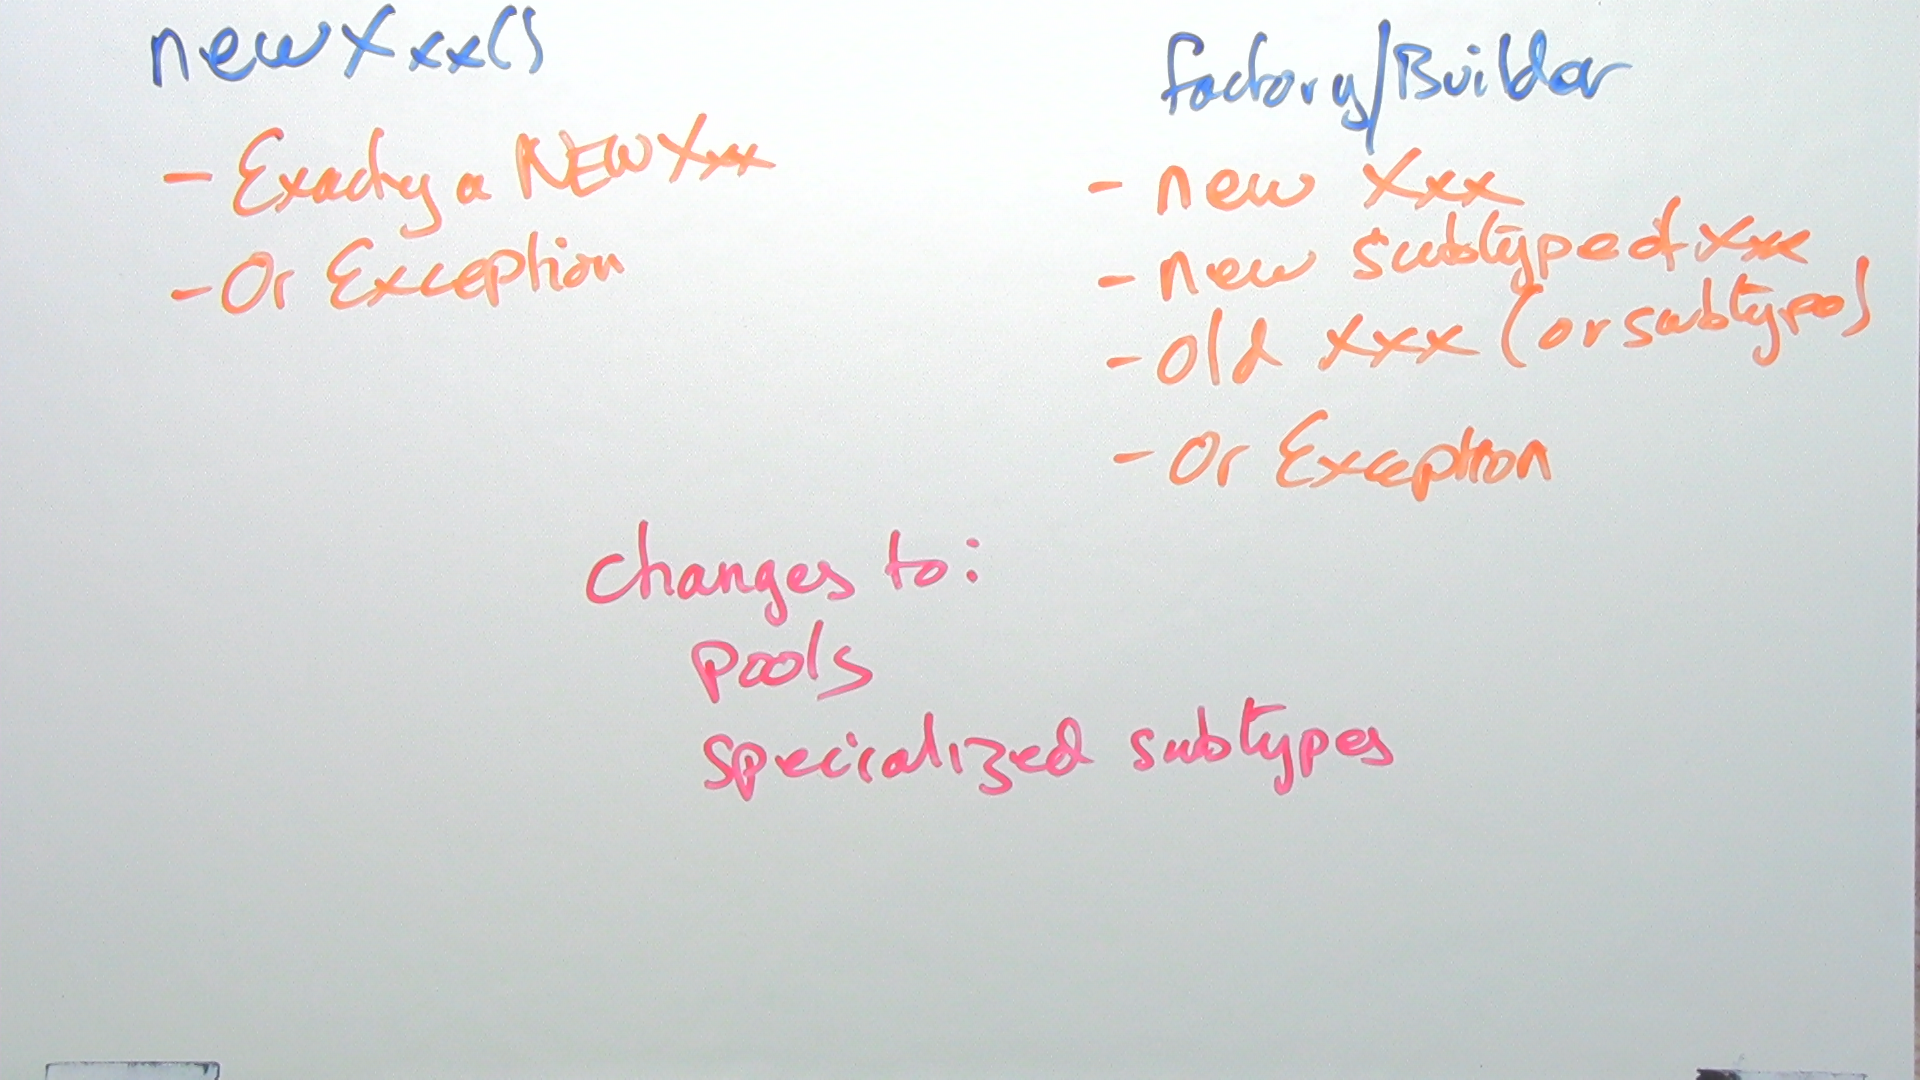 new Xxx()
- Exactly a NEW Xxx
- Or Exception
factory/Builder
- new Xxx
- new subtype of Xxx
- Old Xxx (or subtype)
- Or Exception
Changes to:
pools
specialized subtypes